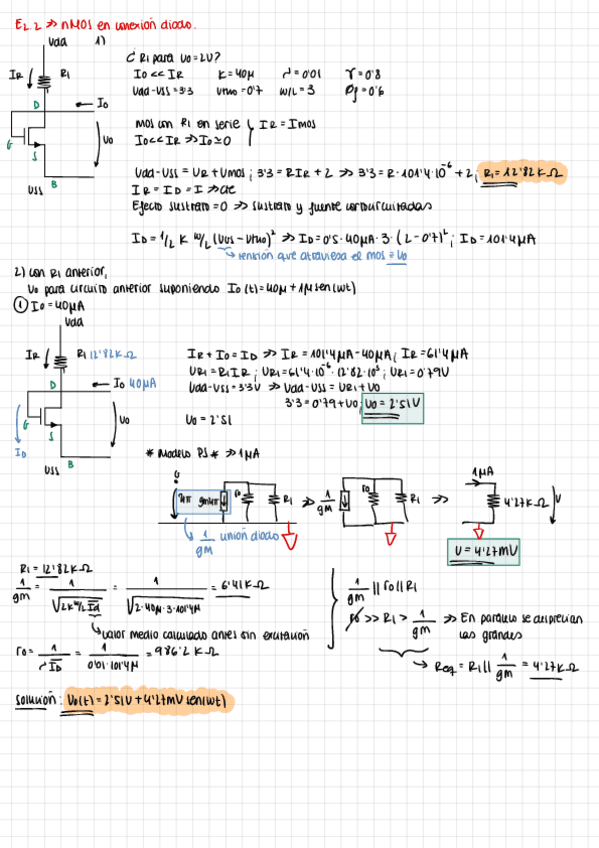 E2.2 >> nMOS en conexión diodo.
Vdd 1)
¿R1 para Vo=2V?
IR R1 Io << IR K=40μ λ=0'01 γ=0'8
Vdd-Vss=3'3 Vtno=0'7 W/L=3 Øf=0'6
D Io
MOS con R1 en serie } IR=Imos
G Vo Io<<IR >> Io≃0
S
B
Vss
Vdd-Vss = VR+Vmos ; 3'3=RIR+2 >> 3'3=R·101'4·10⁻⁶+2 ; R1=12'82KΩ
IR=ID=I >> cte
Efecto sustrato=0 >> sustrato y fuente cortocircuitados
ID=1/2 K W/L (VGS-Vtno)² >> ID=0'5·40μA·3·(2-0'7)² ; ID=101'4μA
tensión que atraviesa el mos = Vo
2) con R1 anterior,
Vo para circuito anterior suponiendo Io(t)=40μ+1μsen(wt)
① Io=40μA
Vdd
IR R1 12'82KΩ IR+Io=ID >> IR=101'4μA-40μA ; IR=61'4μA
VR1=R1IR ; VR1=61'4·10⁻⁶·12'82·10³ ; VR1=0'79V
D Io 40μA Vdd-Vss=3'3V >> Vdd-Vss=VR1+Vo
3'3=0'79+Vo ; Vo=2'51V
G Vo Vo=2'51
S
ID B
Vss
* Modelo PS * >> 1μA
1μA
gmvπ ro R1 >> 1/gm ro R1 >> 4'27KΩ V
1/gm unión diodo
V=4'27mV
R1=12'82KΩ
1/gm = 1/√(2K W/L ID) = 1/√(2·40μ·3·101'4μ) = 6'41KΩ
valor medio calculado antes sin excitación
1/gm || ro || R1
ro >> R1 > 1/gm >> En paralelo se desprecian
las grandes
ro = 1/(λ·ID) = 1/(0'01·101'4μ) = 986'2KΩ
Req = R1 || 1/gm = 4'27KΩ
Solución: Vo(t)=2'51V+4'27mV sen(wt)